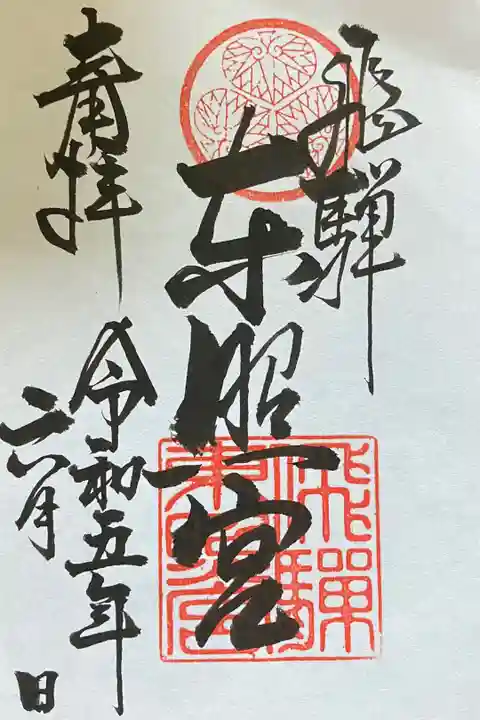 飛騨
東照宮
奉拝
令和五年
六月 日
飛驒
東照宮